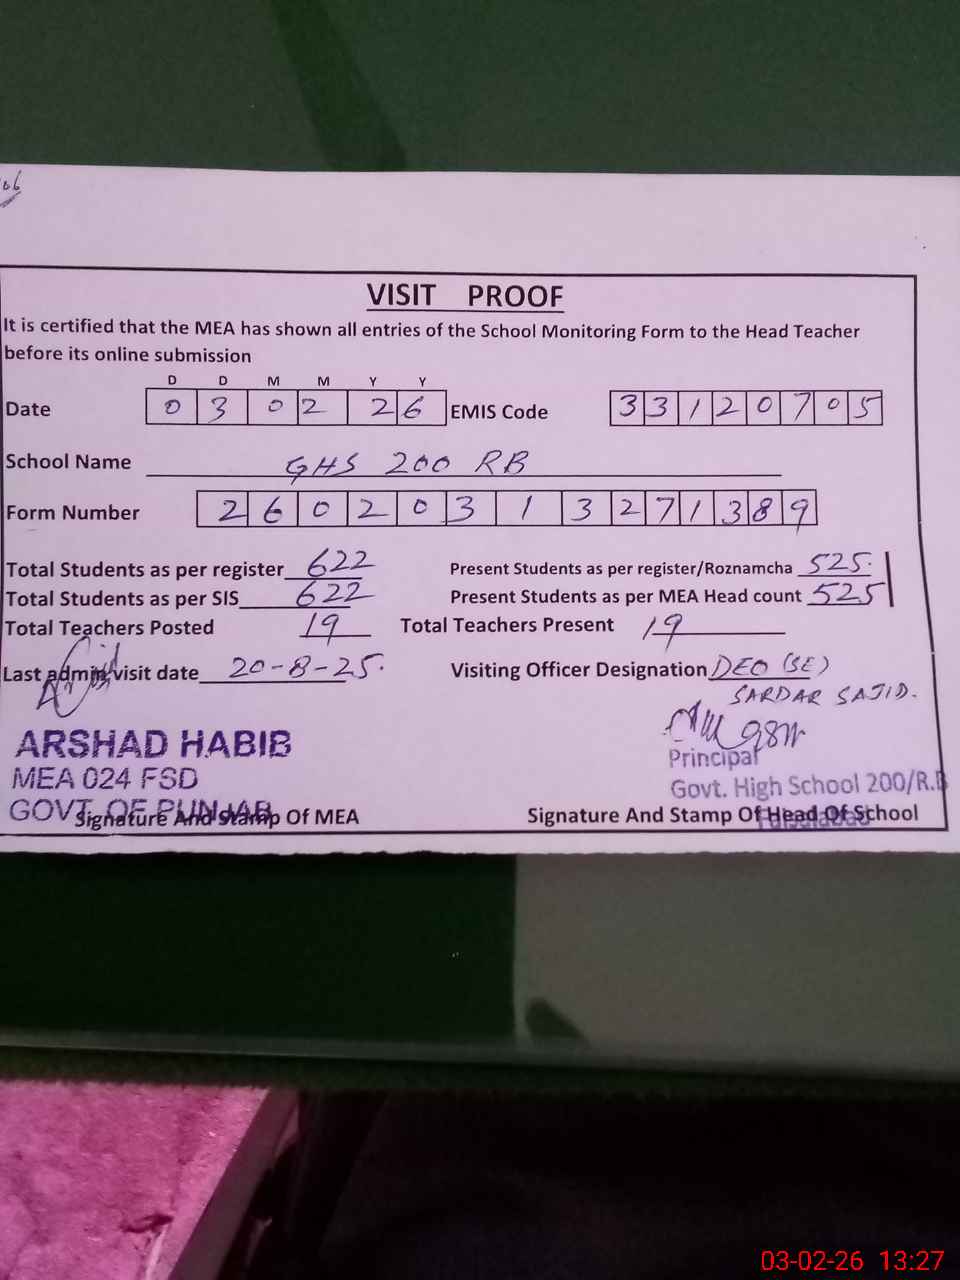 VISIT PROOF
It is certified that the MEA has shown all entries of the School Monitoring Form to the Head Teacher
before its online submission
D D M M Y Y
Date 0 3 0 2 2 6 EMIS Code 3 3 1 2 0 7 0 5
School Name GHS 200 RB
Form Number 2 6 0 2 0 3 1 3 2 7 1 3 8 9
Total Students as per register 622 Present Students as per register/Roznamcha 525.
Total Students as per SIS 622 Present Students as per MEA Head count 525
Total Teachers Posted 19 Total Teachers Present 19
Last admin visit date 20-8-25. Visiting Officer Designation DEO (SE)
SARDAR SAJID.
ARSHAD HABIB
MEA 024 FSD
GOVT. OF PUNJAB
Principal
Govt. High School 200/R.B
Faisalabad
Signature And Stamp Of MEA Signature And Stamp Of Head Of School
03-02-26 13:27